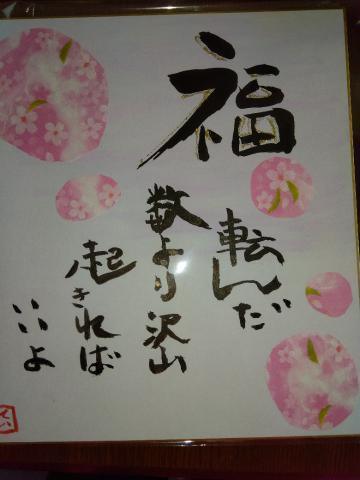 福
転んだ
数より沢山
起きれば
いいよ